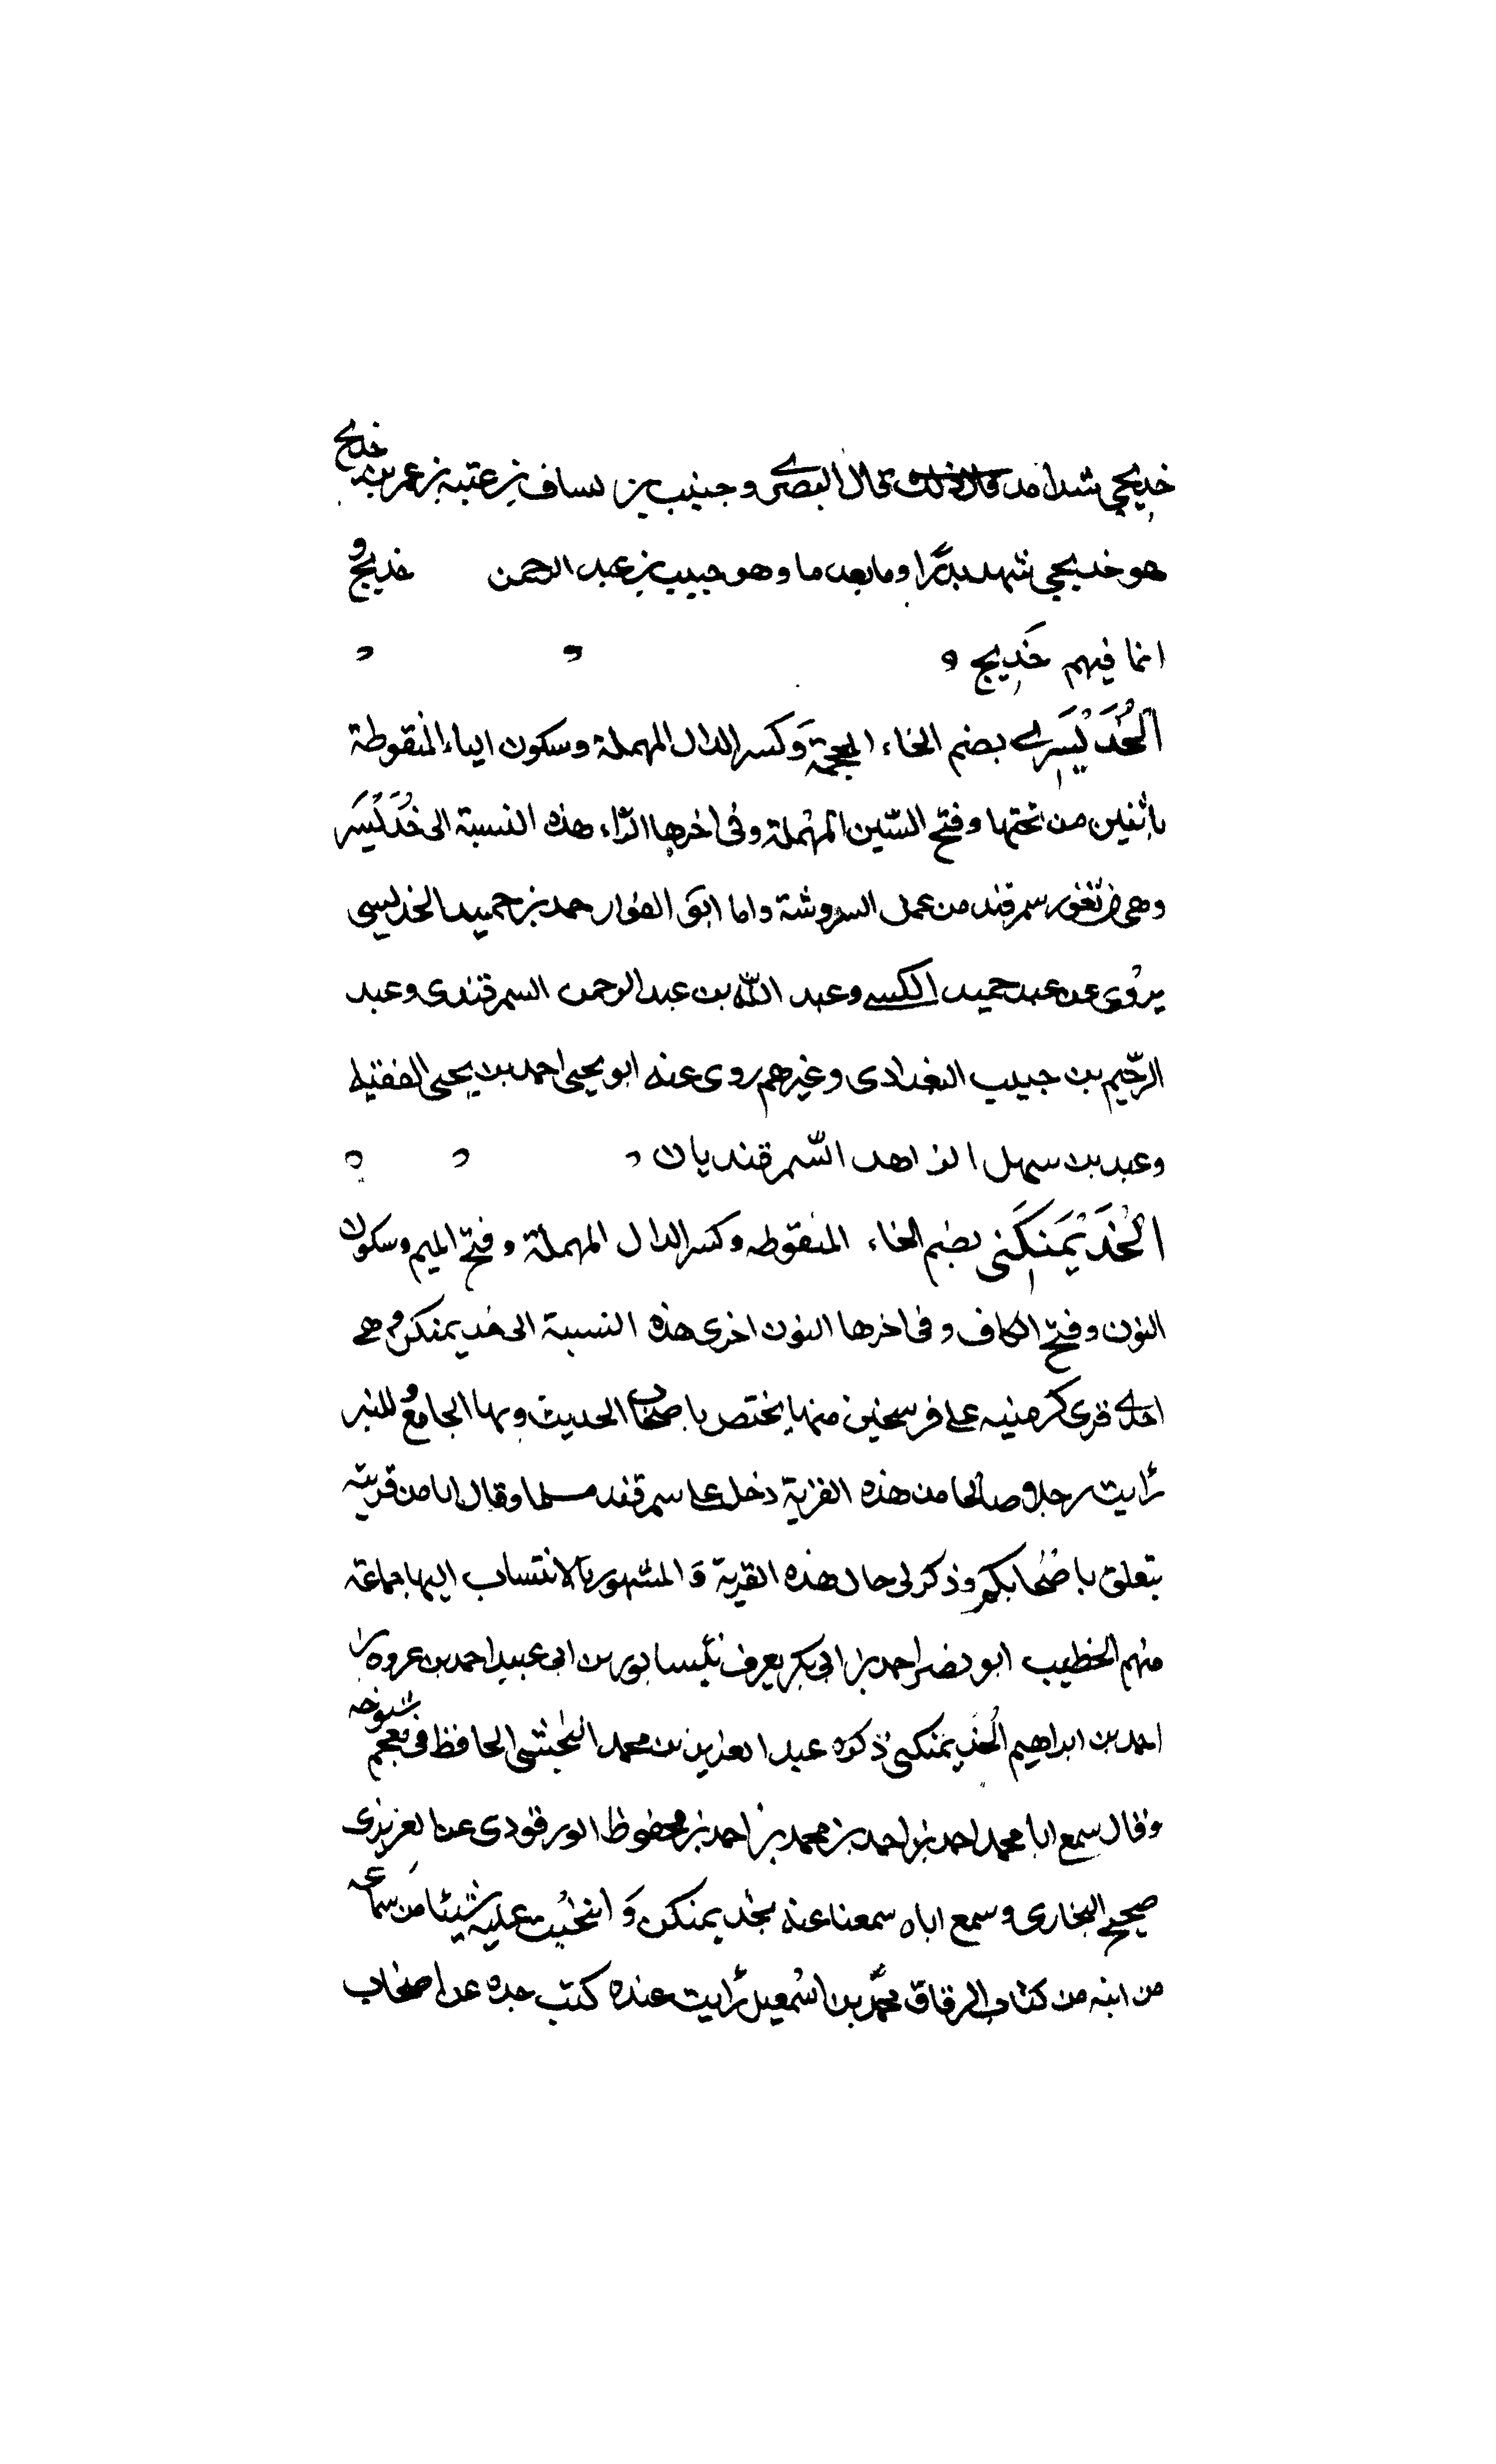 خديجي شهد احد قال ذلك قال البصرى وحبيب بن يساف بن عتبة بن عمر بن خديج
هو خديجي شهد بدرا وما بعدها وهو حبيب بن عبد الرحمن خديج و
انما فيهم خَدِيج
الخُدَيْسَرِي بضم الخاء المعجمة وكسر الدال المهملة وسكون الياء المنقوطة
باثنين من تحتها وفتح السّين المهملة وفى اخرها الرّاء هذه النسبة الى خُدَيْسَر
وهى من ثغور سمرقند من عمل اسروشنة واما ابو الفوارس حمد بن حميد الخديسى
يروى عن عبد حميد الكسى وعبد اللّه بن عبد الرحمن السمرقندى وعبد
الرّحيم بن حبيب البغدادى وغيرهم روى عنه ابو يحيى احمد بن يحيى الفقيه
وعبد بن سهل الزاهد السّمرقنديان
الخُدَيْمَنْكَنى بضم الخاء المنقوطه وكسر الدال المهملة وفتح الميم وسكون
النون وفتح الكاف وفى اخرها النون اخرى هذه النسبة الى خديمنكن وهى
احدى قرى كرمنيه على فرسخين منها يختص باصحاب الحديث وبها الجامع و المنبر
رأيت رجلا صالحا من هذه القرية دخل على سمرقند مسلما وقال انا من قرية
يتعلق باصحابكم وذكر لى حال هذه القرية وَ المشهور بالانتساب اليها جماعة
منهم الخطيب ابو نصر احمد بن ابى بكر يعرف بنيسابور بن ابى عبيد احمد بن عروة بن
احمد بن ابراهيم الخُديمنكنى ذكره عبد العزيز بن محمد النخشبى الحافظ فى معجم شيوخه
وقال سمع ابا محمد احمد بن احمد بن محمد بن احمد بن محفوظ الورقودى عن الفربرى
صحيح البخارى وسمع اباه سمعنا عنه بخديمنكن وَ انتخبت عليه شيئا من سماعه
من ابنه من كتاب الرقاق محمّد بن اسمعيل رأيت عنده كتب جده عن اصحاب